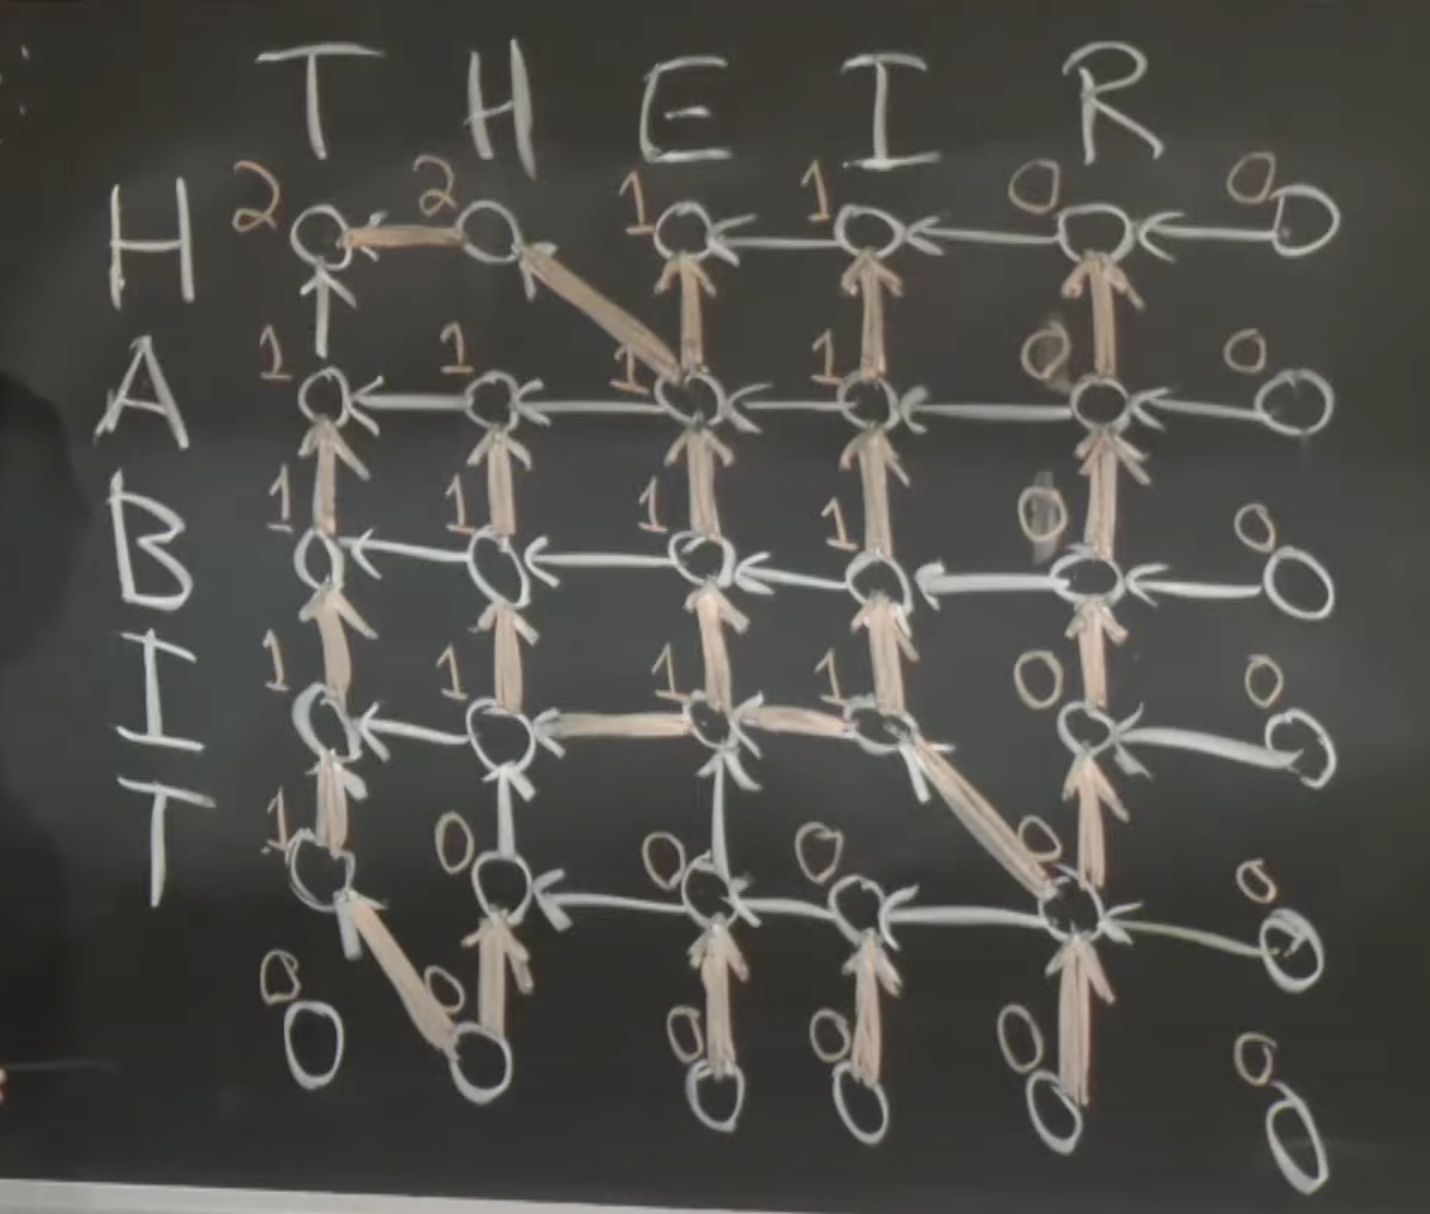 T H E I R
H 2 2 1 1 0 0
A 1 1 1 1 0 0
B 1 1 1 1 0 0
I 1 1 1 1 0 0
T 1 0 0 0 0 0
0 0 0 0 0 0